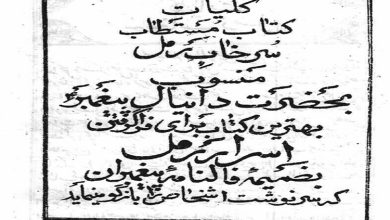 کلیات
کتاب مستطاب
سرخاب رمل
منسوب
بحضرت دانیال پیغمبر
بهترین کتاب برای فراگرفتن
اسرار رمل
بضمیمهٔ فالنامهٔ پیغمبران
که سرنوشت اشخاص را بازگو مینماید